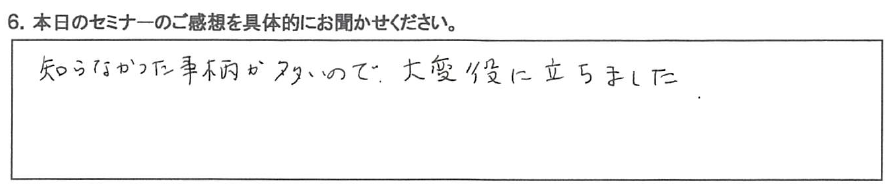 6. 本日のセミナーのご感想を具体的にお聞かせください。
知らなかった事柄が多いので、大変役に立ちました.